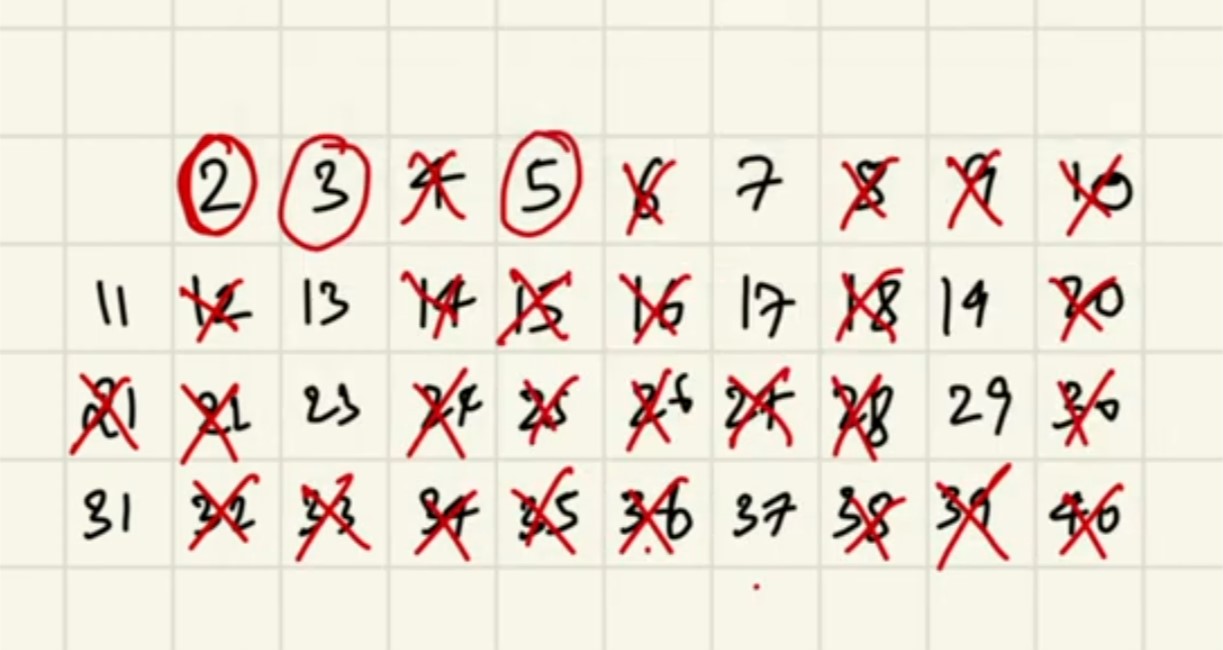 2 3 4 5 6 7 8 9 10
11 12 13 14 15 16 17 18 19 20
21 21 23 24 25 26 27 28 29 30
31 32 33 34 35 36 37 38 39 40